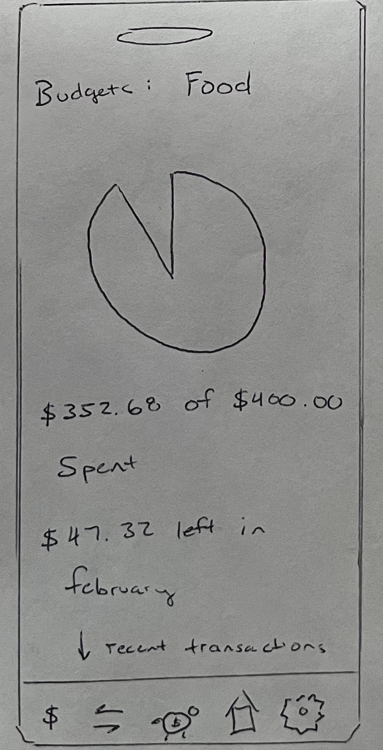 Budgets: Food
$352.68 of $400.00
Spent
$47.32 left in
february
↓ recent transactions
$
$